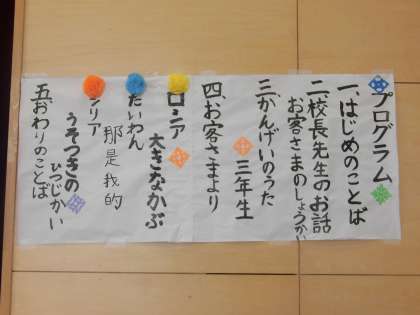 プログラム
一、はじめのことば
二、校長先生のお話
お客さまのしょうかい
三、かんげいのうた
三年生
四、お客さまより
ロシア
大きなかぶ
たいわん
那是我的
シリア
うそつきの
ひつじかい
五、おわりのことば